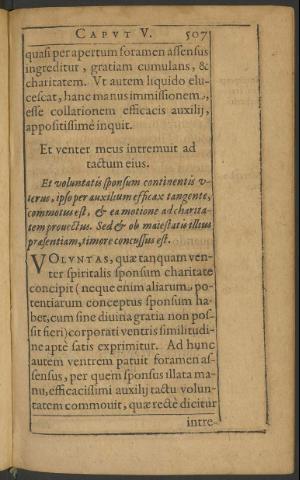 CAPVT V. 507
quasi per apertum foramen assensus
ingreditur, gratiam cumulans, &
charitatem. Vt autem liquido elu-
cescat, hanc manus immissionem,
esse collationem efficacis auxilij,
appositissimè inquit.
Et venter meus intremuit ad
tactum eius.
Et voluntatis sponsum continentis v-
terus, ipso per auxilium efficax tangente,
commotus est, & ea motione ad charita-
tem prouectus. Sed & ob maiestatis illius
præsentiam, timore concussus est.
VOLVNTAS, quæ tanquam ven-
ter spiritalis sponsum charitate
concipit (neque enim aliarum, po-
tentiarum conceptus sponsum ha-
bet, cum sine diuina gratia non pos-
sit fieri) corporati ventris similitudi-
ne aptè satis exprimitur. Ad hunc
autem ventrem patuit foramen as-
sensus, per quem sponsus illata ma-
nu, efficacissimi auxilij tactu volun-
tatem commouit, quæ rectè dicitur
intre-